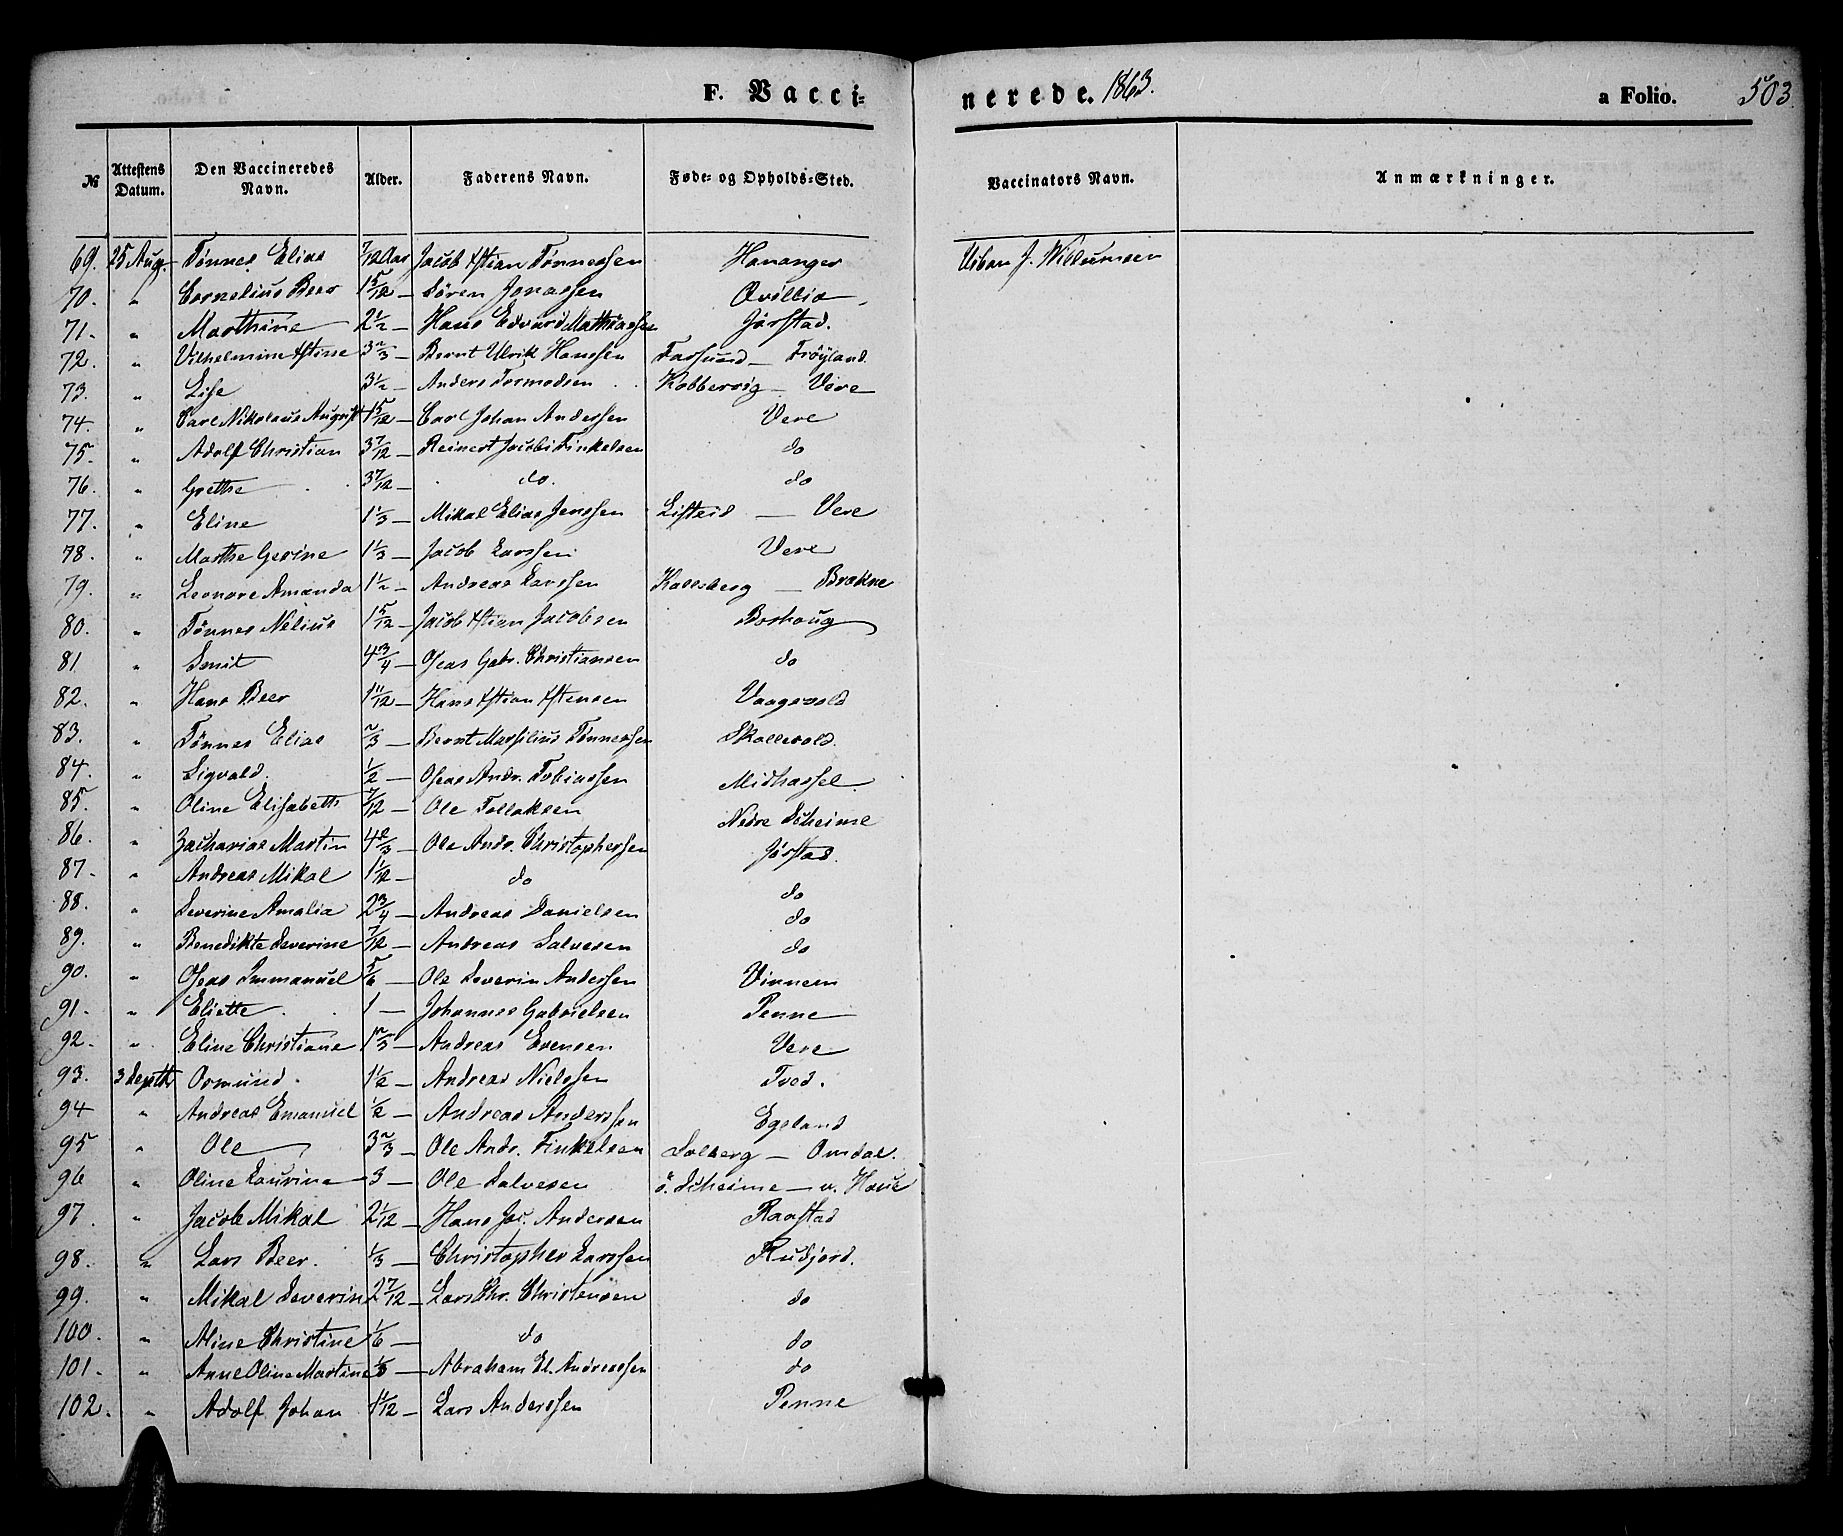 F. Vacci-
nerede. 1863.
a Folio. 503
№ Attestens Datum. Den Vaccineredes Navn. Alder. Faderens Navn. Føde- og Opholds-Sted. Vaccinators Navn. Anmærkninger.
69. 25 Aug. Tönnes Elias 7/12 Aar Jacob Xstian Tönnessen Hananger
70. " Cornelius Beer 1 5/12 — Sören Jonassen
71. " Marthine 2 1/2 — Hans Edvard Mathiassen Jörstad.
72. " Vilhelmine Xstine 3 2/3 — Bernt Ulrik Hanssen Farsund — Fröyland.
73. " Lise 3 1/2 — Anders Tormodsen Kobbervig — Vere
74. " Carl Nikolaus August 1 5/12 — Carl Johan Anderssen Vere
75. " Adolf Christian 3 7/12 — Reinert Jacobi Finkelsen do
76. " Grethe 3 7/12 — do. do
77. " Eline 1 1/3 — Mikal Elias Jenssen Listeid — Vere
78. " Marthe Gerine 1 1/3 — Jacob Larssen Vere
79. " Leonore Amanda 1 1/2 — Andreas Larssen Kalleberg — Brekne
80. " Tönnes Nelius 1 5/12 — Jacob Xstian Jacobsen Borhoug
81 " Smit 4 3/4 — Oseas Gabr. Christiansen do
82. " Hans Beer 1 11/12 — Hans Xstian Xstensen Vaagsvold
83. " Tönnes Elias 2/3 — Bernt Marsilius Tönnessen Skollevold.
84. " Sigvald. 1/2 — Oseas Andr. Tobiassen Midhassel.
85. " Oline Elisabeth 7/12 — Ole Tollaksen Nedre Skeime
86. " Zacharias Martin 4 2/3 — Ole Andr. Christophersen Jörstad.
87. " Andreas Mikal 1 1/12 — do do
88. " Severine Amalia 2 3/4 — Andreas Danielsen do
89. " Benedikte Severine 7/12 — Andreas Salvesen do
90. " Oseas Immanuel 5/6 — Ole Severin Anderssen Vinnem
91. " Eliette 1 — Johannes Gabrielsen Penne
92. " Eline Christiane 1 2/3 — Andreas Evensen Vere
93. 3 Septbr Osmund. 1 1/2 — Andreas Nielssen Tved.
94 " Andreas Emanuel 1/2 — Andreas Anderssen Egeland
95 " Ole 3 2/3 — Ole Andr. Finkelsen Solberg — Omdal.
96 " Oline Laurine 3 — Ole Salvesen ö. Skeime — v. Haue
97. " Jacob Mikal 2 1/12 — Hans Jac. Andersen Raastad
98. " Lars Beer. 1/3 — Christopher Larssen Rudjord.
99. " Mikal Severin 2 7/12 — Lars Chr. Christensen do
100. " Aline Christine 1/6 — do do
101. " Anne Oline Martine 1/3 — Abraham El. Andreassen do
102. " Adolf Johan 1 1/12 — Lars Anderssen Penne